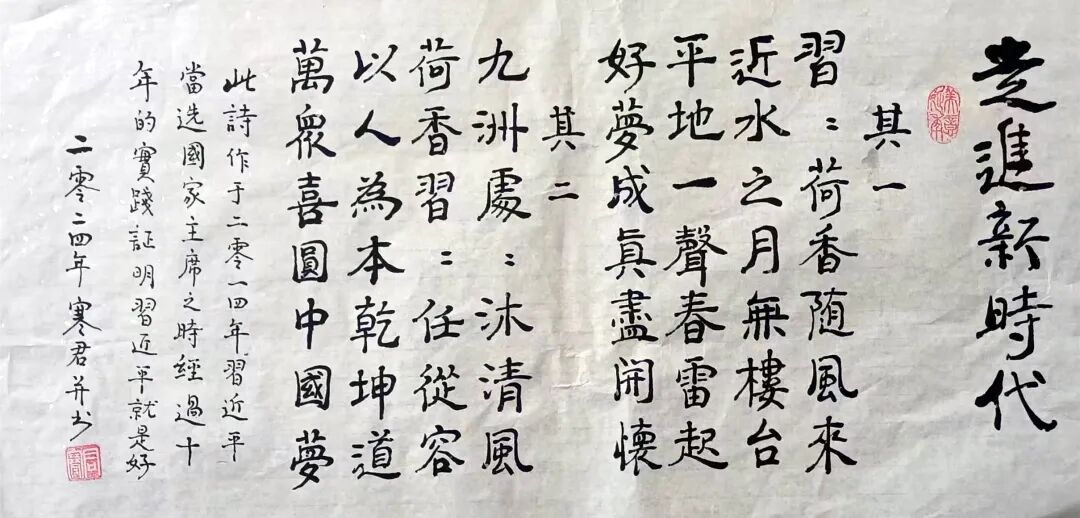 走進新時代
其一
習：荷香随風來
近水之月無樓台
平地一聲春雷起
好夢成真盡開懷
其二
九洲處：沐清風
荷香習：任從容
以人為本乾坤道
萬眾喜圓中國夢
此詩作于二零一四年習近平
當选國家主席之時經過十
年的實踐証明習近平就是好
二零二四年寒君并书